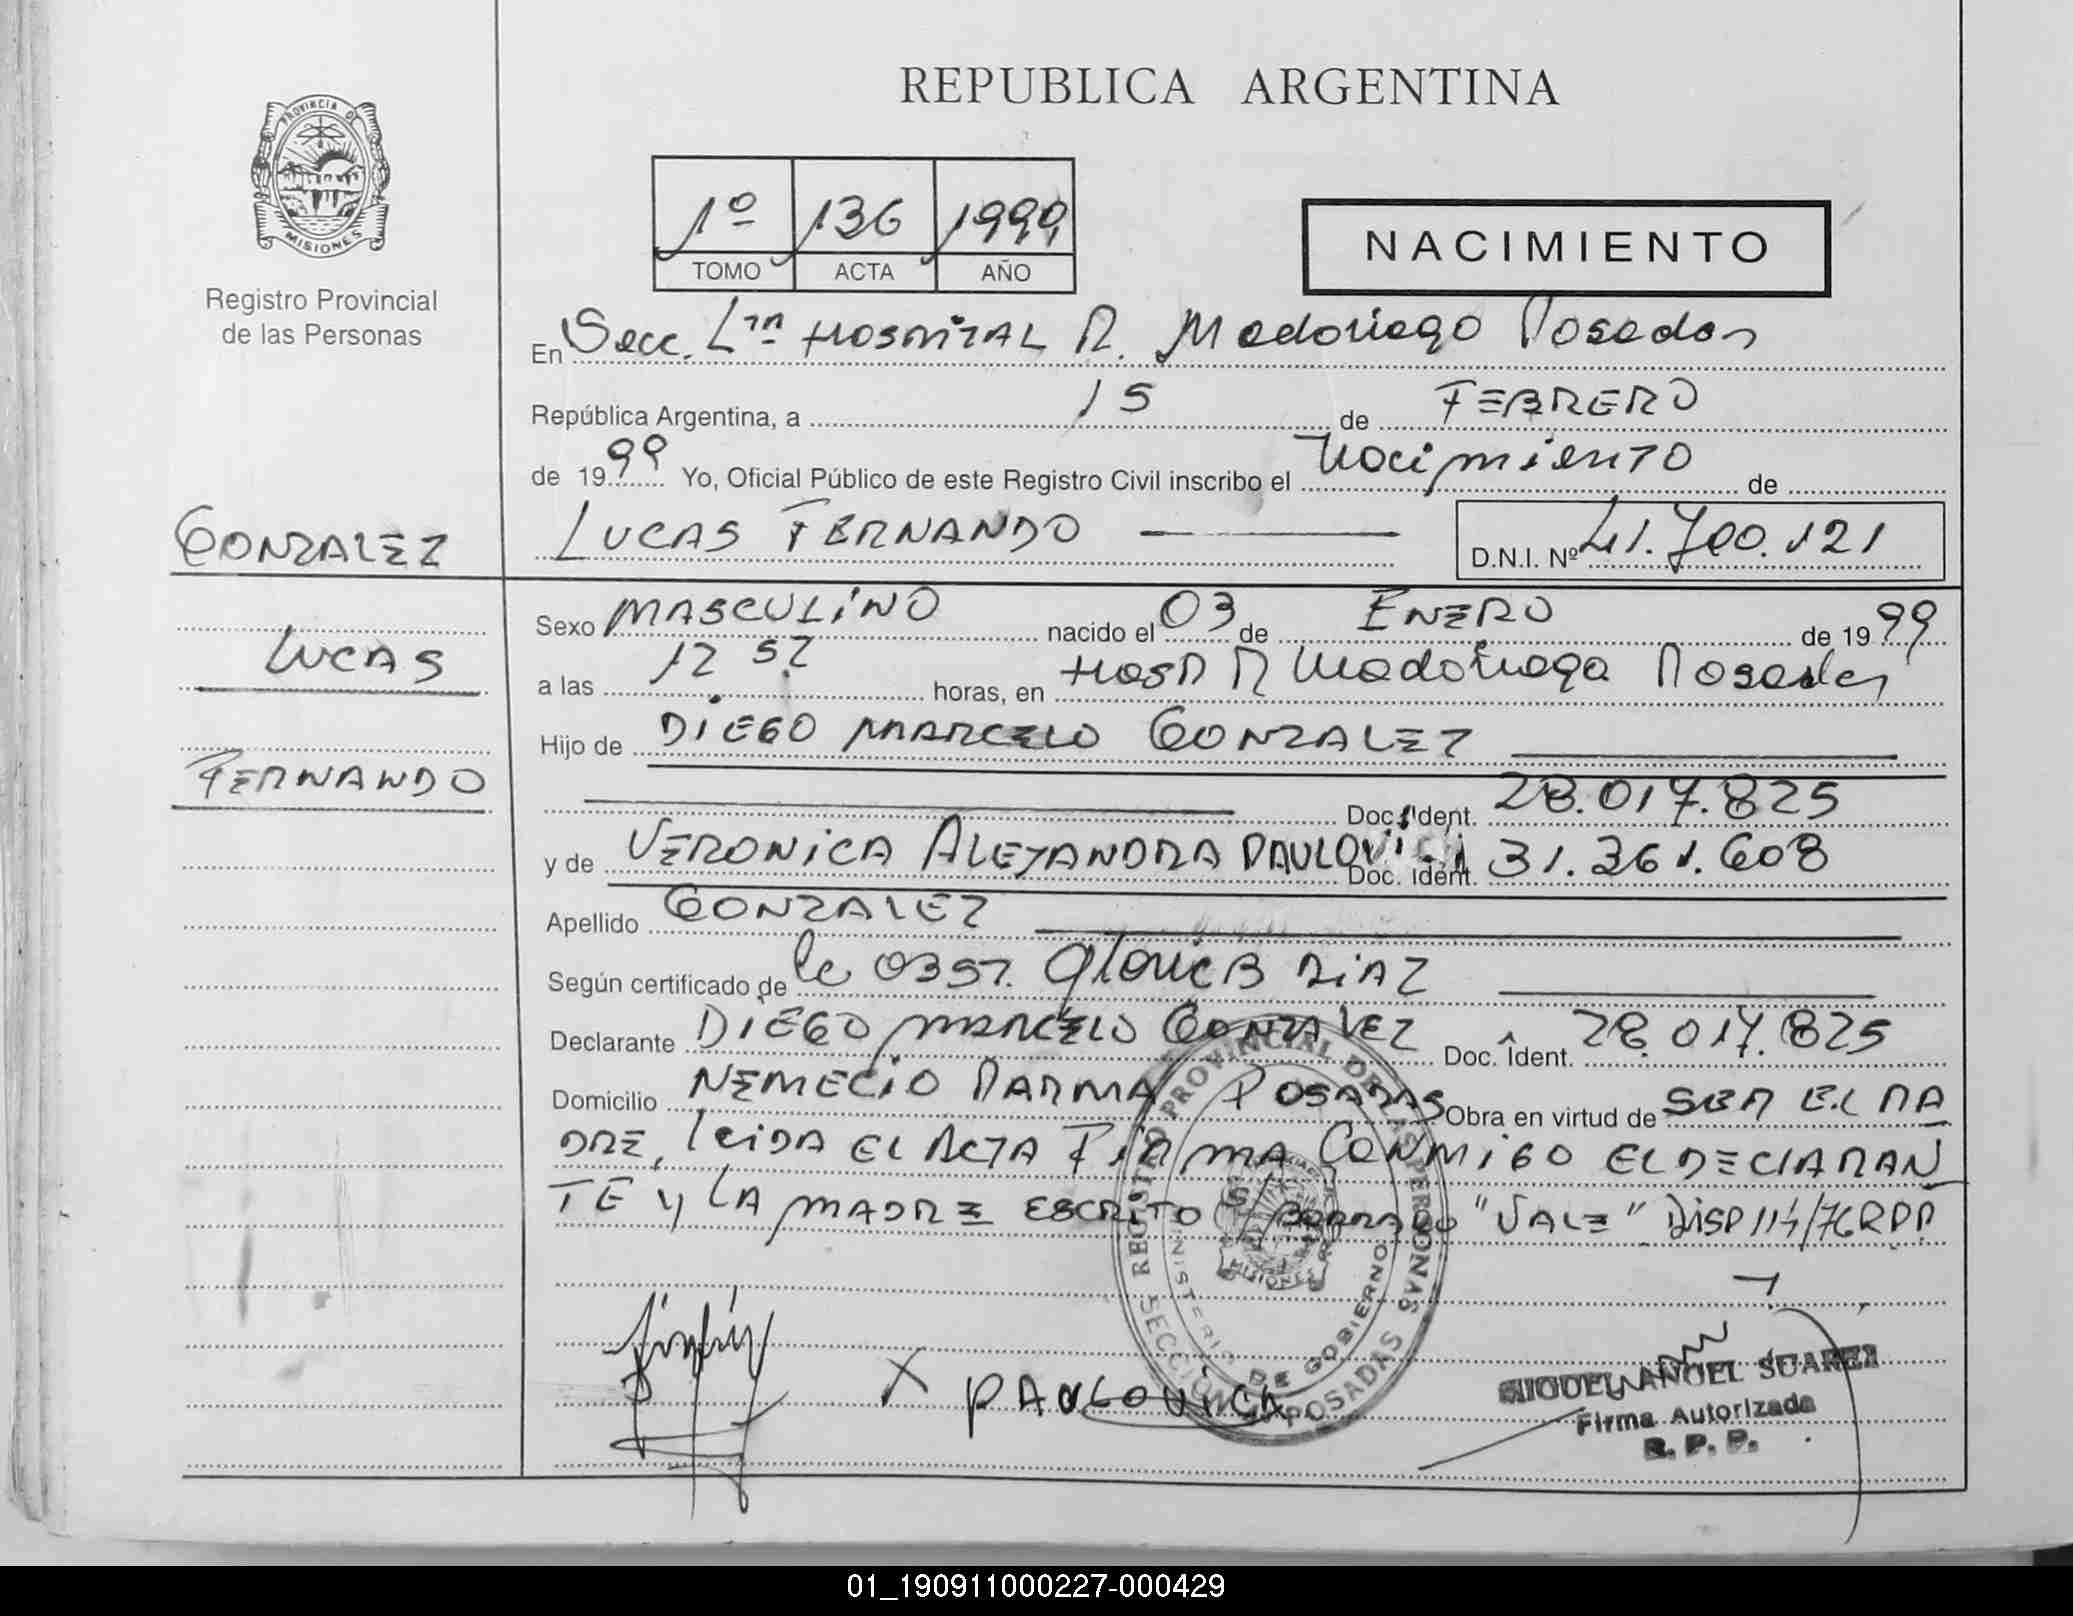 REPUBLICA ARGENTINA
PROVINCIA DE
MISIONES
Registro Provincial
de las Personas
1º 136 1999
TOMO ACTA AÑO
NACIMIENTO
En Secc. HOSPITAL R. Madariaga Posadas
República Argentina, a 15 de FEBRERO
de 1999 Yo, Oficial Público de este Registro Civil inscribo el Nacimiento de
LUCAS FERNANDO D.N.I. Nº 41.700.121
GONZALEZ
LUCAS
FERNANDO
Sexo MASCULINO nacido el 03 de ENERO de 1999
a las 12 52 horas, en HOSP R Madariaga Posadas
Hijo de DIEGO MARCELO GONZALEZ
Doc. Ident. 28.017.825
y de VERONICA ALEJANDRA Doc. Ident. 31.361.608
Apellido GONZALEZ
Según certificado de la OBST. Gloria DIAZ
Declarante DIEGO MARCELO GONZALEZ Doc. Ident. 28.017.825
Domicilio NEMECIO PARMA POSADAS Obra en virtud de SER EL PA
DRE, leIDA EL ACTA FIRMA CONMIGO EL DECLARAN
TE y LA MADRE ESCRITO S/ BORRADO "VALE" DISP 114/76 RPP
REGISTRO PROVINCIAL DE LAS PERSONAS
MINISTERIO DE GOBIERNO
MISIONES
SECCION POSADAS
X PAULOVICA
MIGUEL ANGEL SUAREZ
Firma Autorizada
R. P. P.
01_190911000227-000429